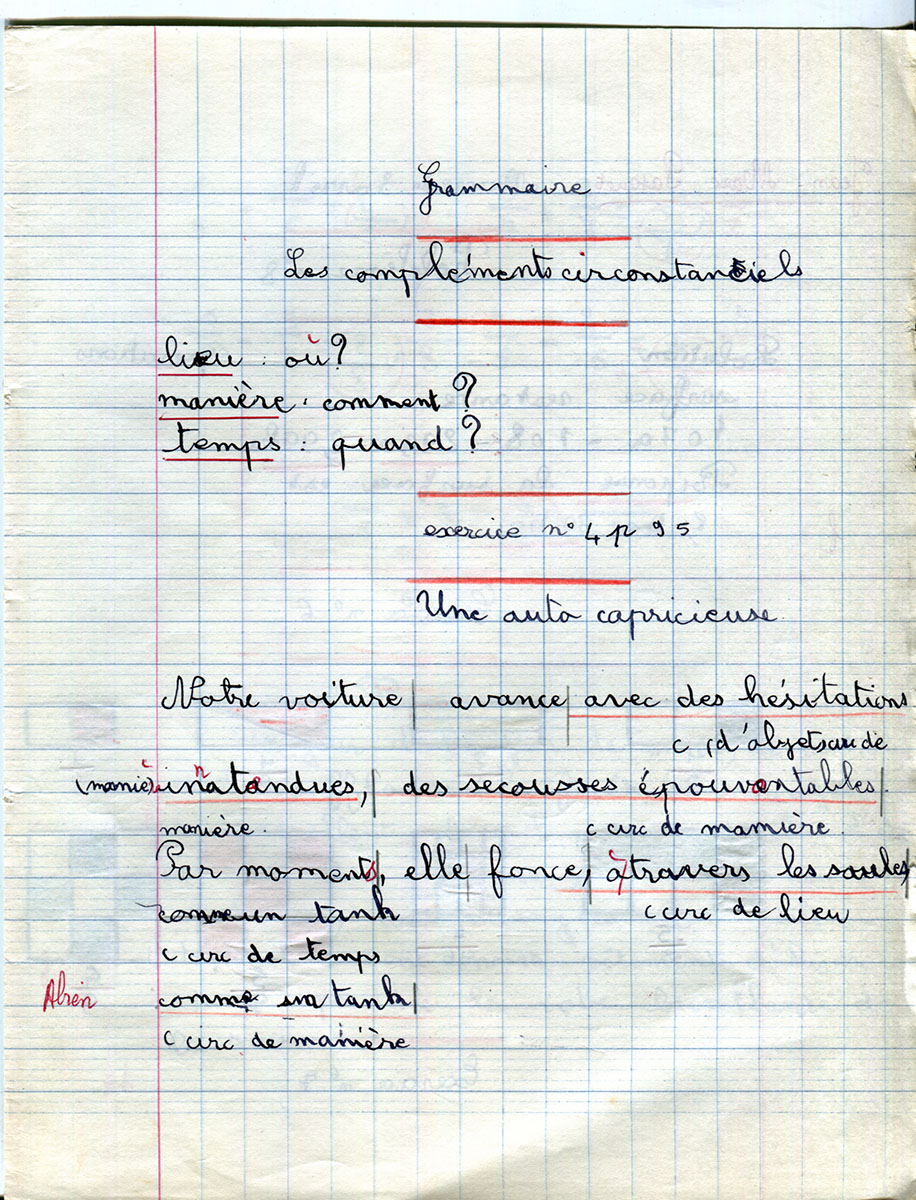 Grammaire
Les compléments circonstanciels
lieu : où?
manière : comment?
temps : quand?
exercice n° 4 p 95
Une auto capricieuse.
Notre voiture | avance | avec des hésitations
c (d'objet) circ de
(manière) inattendues, | des secousses épouvantables |.
manière. c circ de mamière.
Par moments, | elle | fonce, | à travers les
comme un tank c circ de lieu
c circ de temps
comme un tank |
c circ de manière